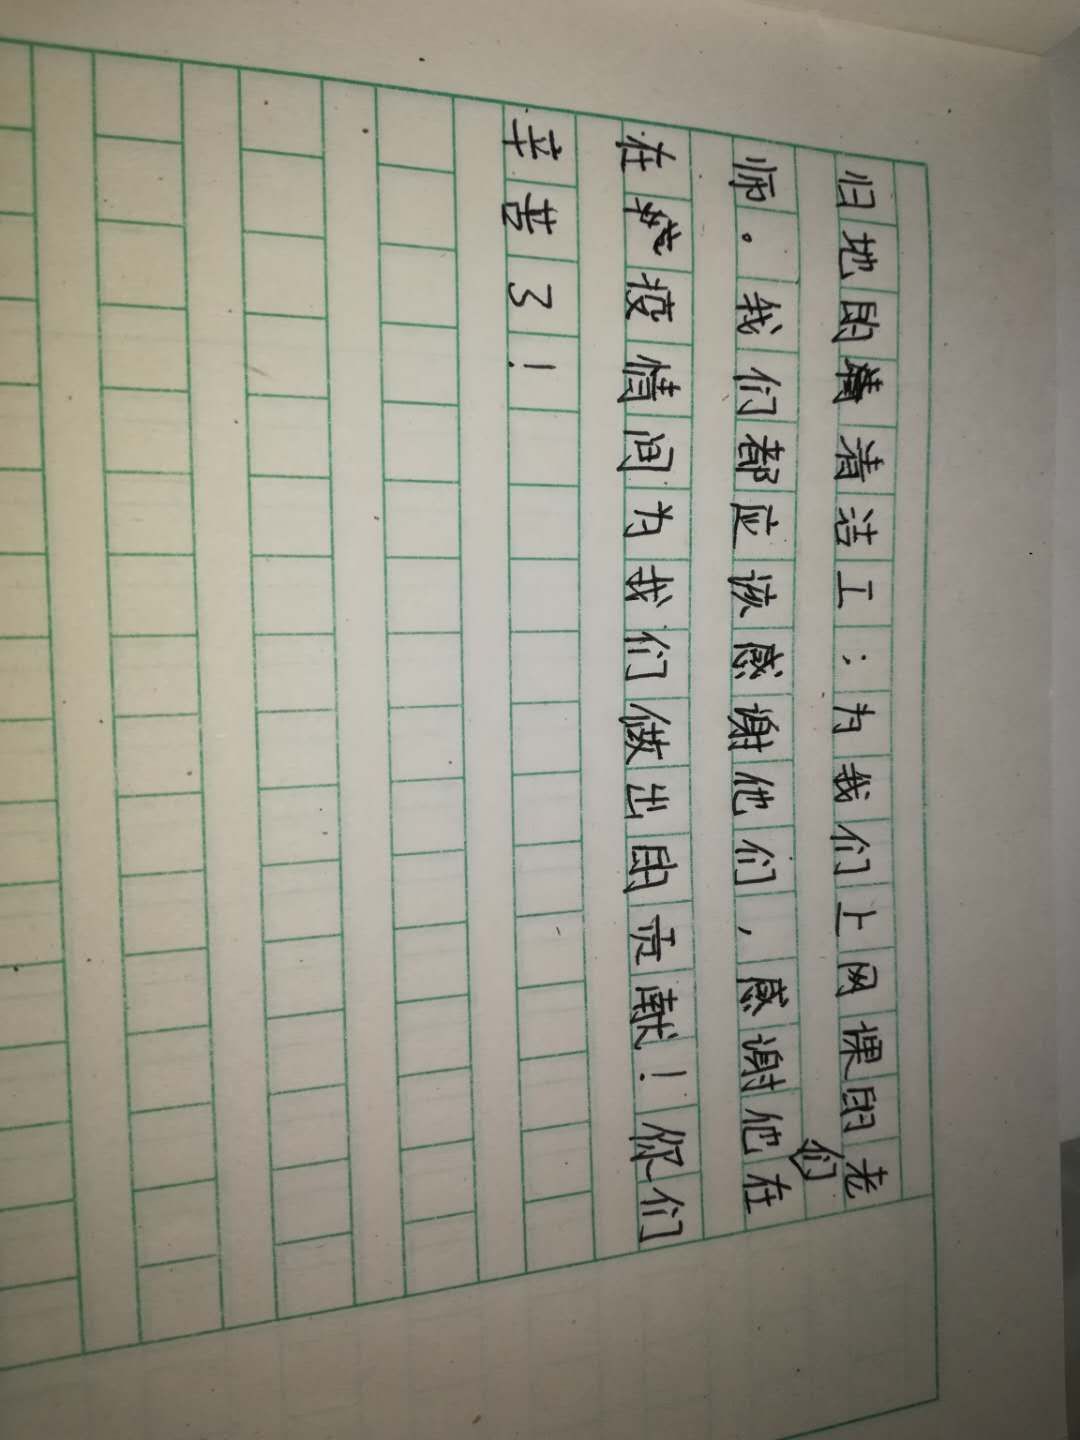 归地的清洁工；为我们上网课的老
师。我们都应该感谢他们，感谢他们在
在疫情间为我们做出的贡献！你们
辛苦了！